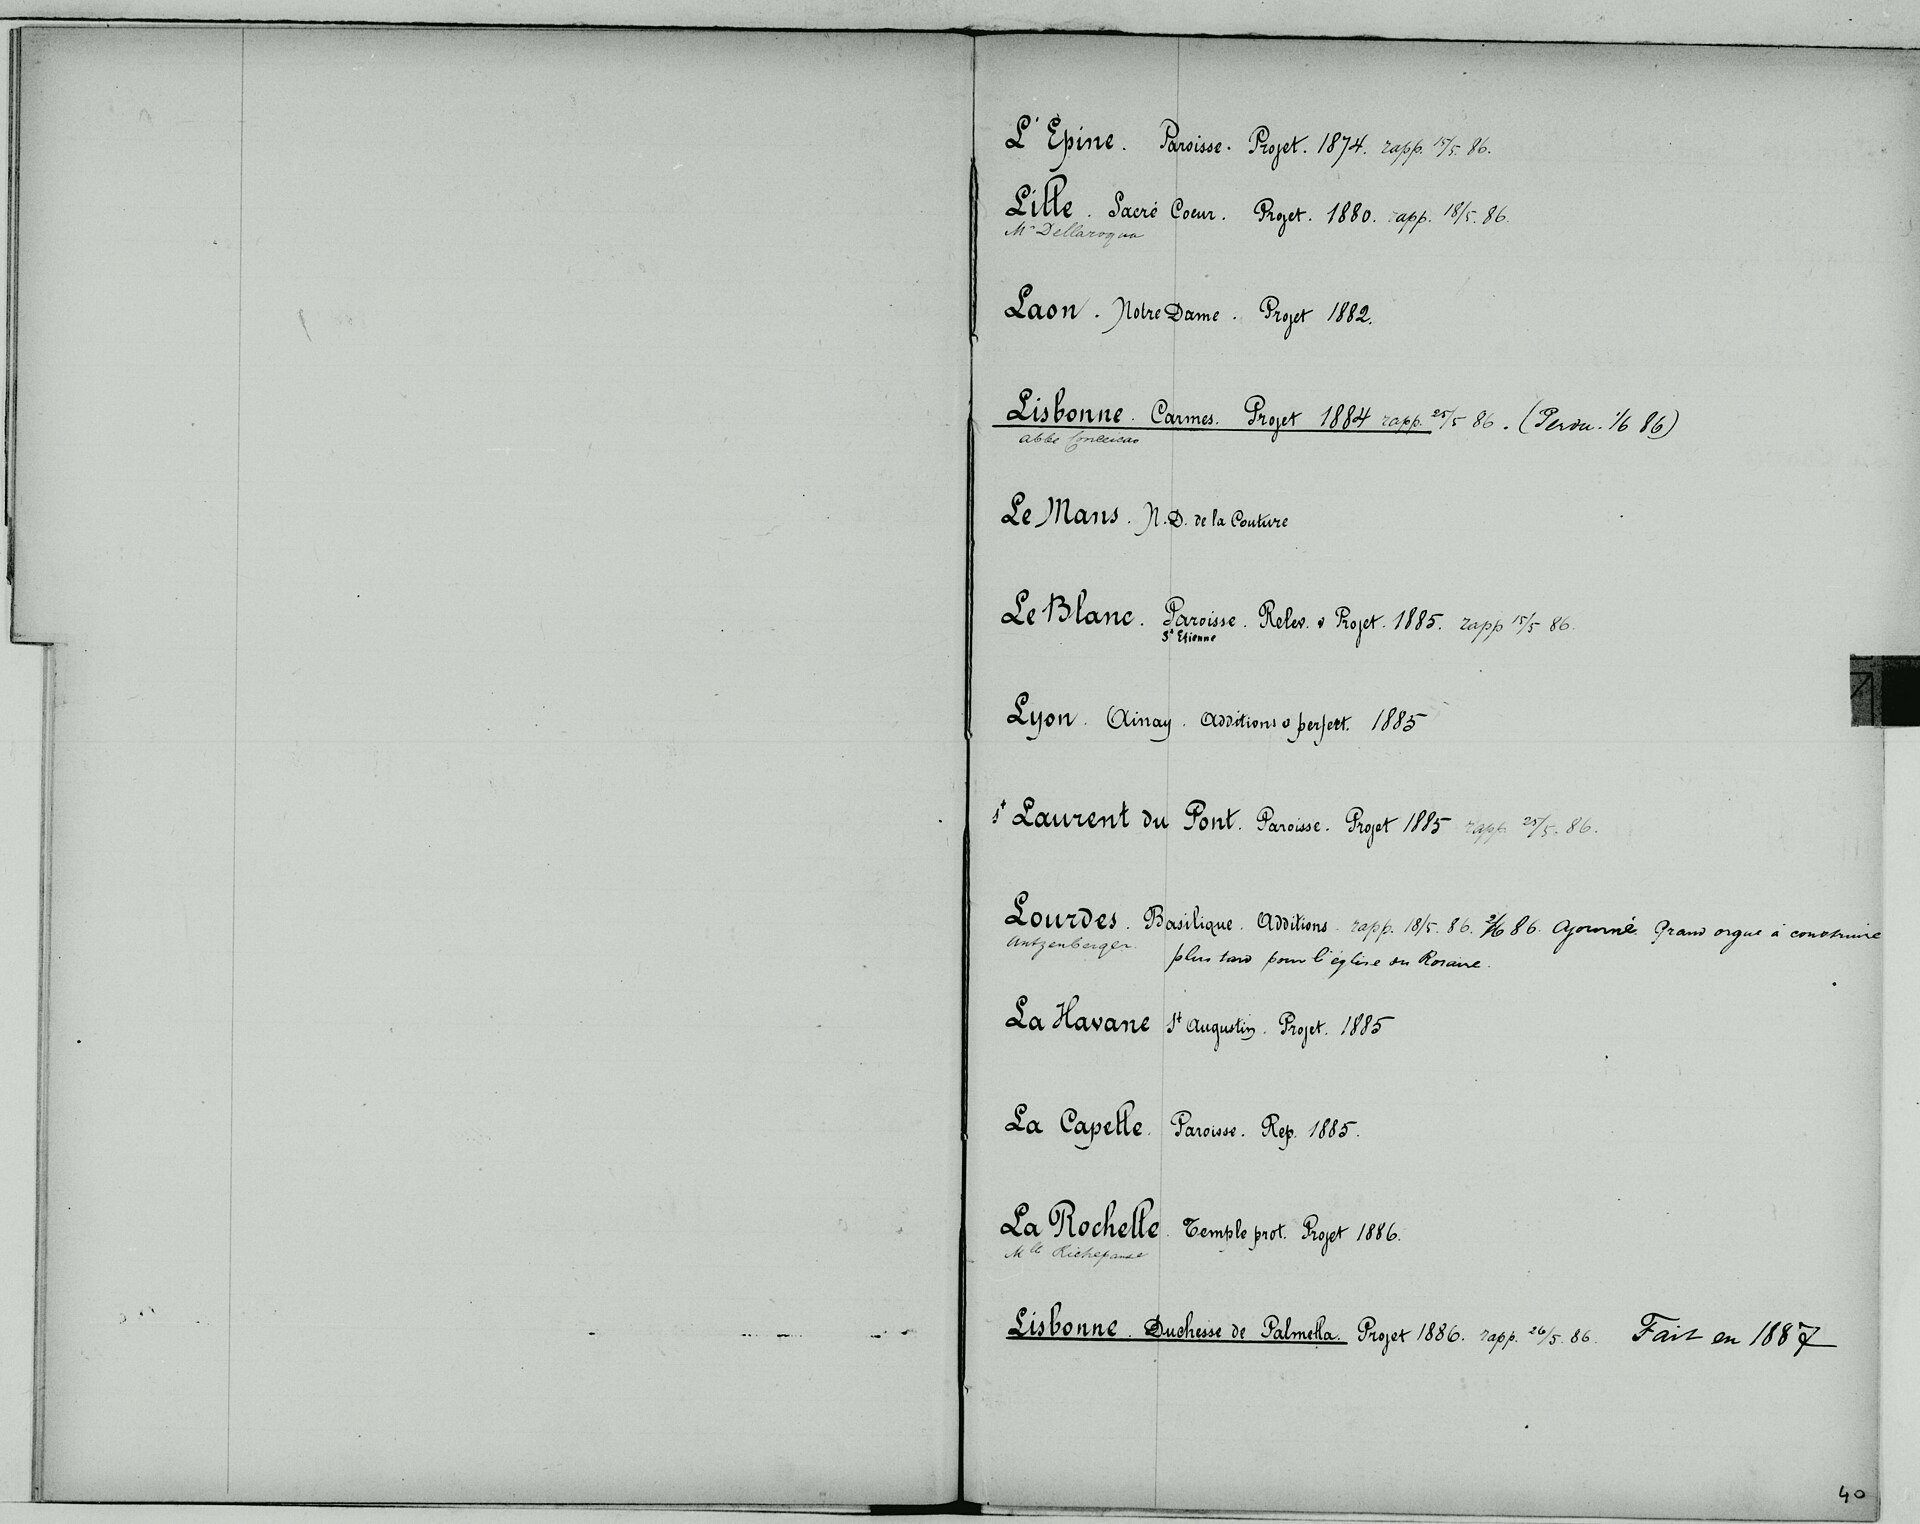 L'Epine. Paroisse. Projet. 1874. rapp. 15/5. 86.
Lille. Sacré Coeur. Projet. 1880. rapp. 18/5. 86.
Laon. Notre Dame. Projet 1882.
Lisbonne. Carmes. Projet 1884 rapp. 25/5 86. (Perdu. 1/6 86)
abbé
Le Mans. N.D. de la Couture
Le Blanc. Paroisse. Relev. & Projet. 1885. rapp 15/5 86.
St Etienne
Lyon. Ainay. Additions & perfect. 1885
St Laurent du Pont. Paroisse. Projet 1885 rapp. 25/5. 86.
Lourdes. Basilique. Additions. rapp. 18/5. 86. 2/6 86. Ajourné. Grand orgue à construire
Antzenberger.
plus tard pour l'église du Rosaire.
La Havane St Augustin. Projet. 1885
La Capelle. Paroisse. Rep. 1885.
La Rochelle. Temple prot. Projet 1886.
Mlle Richepanse
Lisbonne. Duchesse de Palmella. Projet 1886. rapp. 26/5. 86. Fait en 1887
40